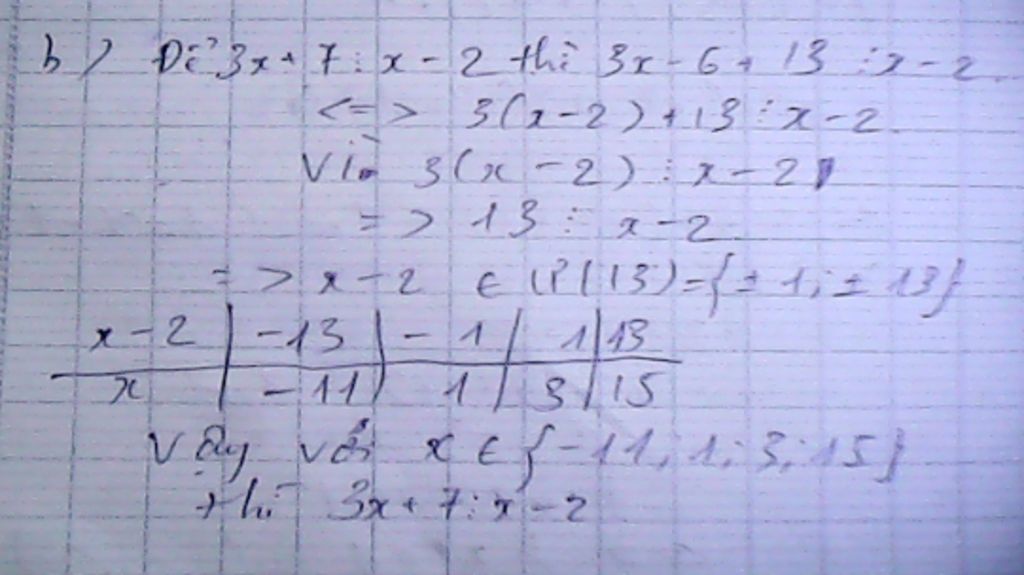 b) Để 3x + 7 ⋮ x - 2 thì 3x - 6 + 13 ⋮ x - 2
<=> 3(x - 2) + 13 ⋮ x - 2.
Vì 3(x - 2) ⋮ x - 2
=> 13 ⋮ x - 2
=> x - 2 ∈ Ư(13) = {± 1; ± 13}
x - 2 | -13 | -1 | 1 | 13
x | -11 | 1 | 3 | 15
Vậy với x ∈ {-11; 1; 3; 15}
thì 3x + 7 ⋮ x - 2